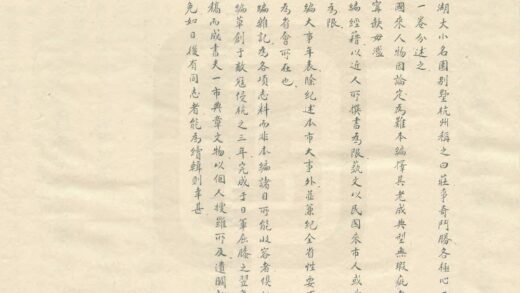 湖大小名園别墅杭州稱之曰莊爭奇鬥勝各極心
一卷分述之
國來人物因論定為難本編擇其老成典型無瑕疵
寧缺毋濫
編經籍以近人所撰書為限藝文以民國來市人或
為限
編大事年表除紀述本市大事外並兼紀全省性要
為省會所在也
編雜記為各項志料而非本編諸目所能收容者俱
編草創于敵寇侵杭之三年完成于日軍屈膝之翌
稿而成書夫一市典章文物以個人搜羅所及遺闕
免如日後有同志者能為續輯則幸甚